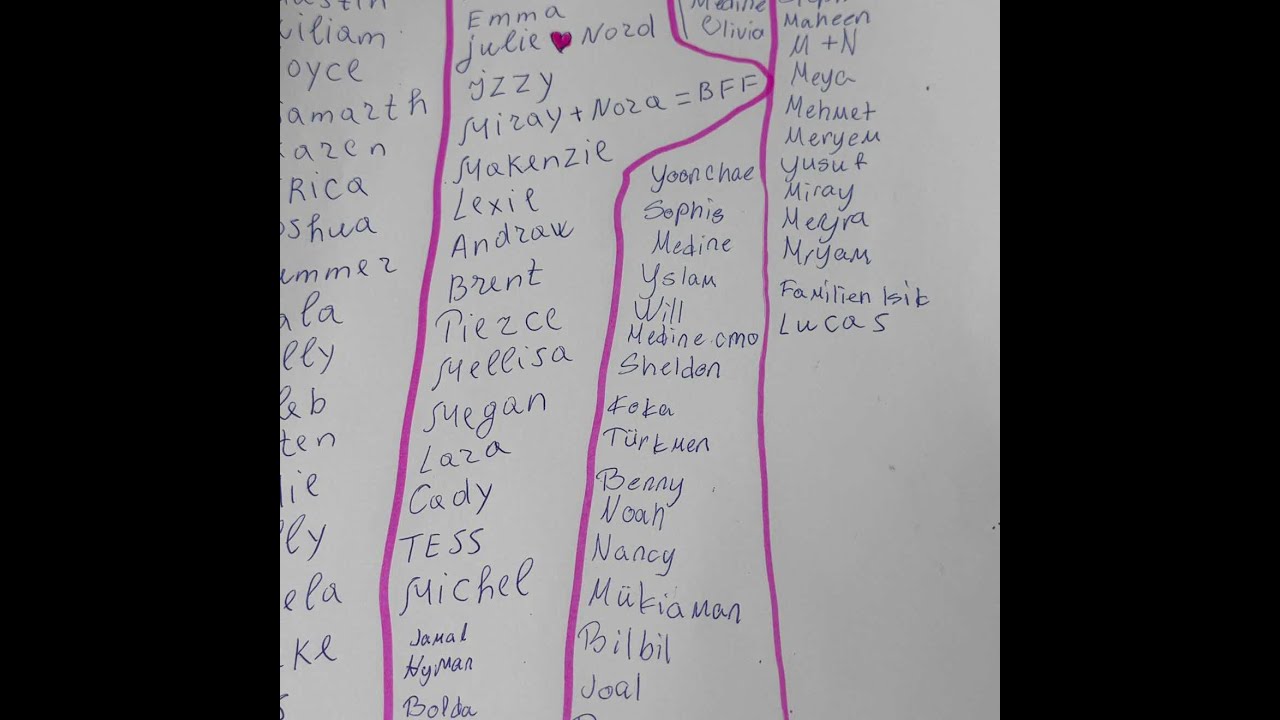 iliam
oyce
amarth
aren
RICA
shua
ummer
ala
lly
leb
ten
lie
lly
ela
ke
Emma
Julie ♥ Nord
Jzzy
Miray + Nora = BFF
Makenzie
Lexie
Andraw
Brent
Pierce
Mellisa
Megan
Lara
Cady
TESS
Michel
Jamal
Hyman
Bolda
Medine
Olivia
Yoonchae
Sophis
Medine
Yslam
Will
Medine.cmo
Sheldon
Koka
Türkmen
Benny
Noah
Nancy
Mükiaman
Bilbil
Joal
Maheen
M + N
Meya
Mehmet
Meryem
Yusuf
Miray
Meyra
Mryam
Familien Isik
Lucas